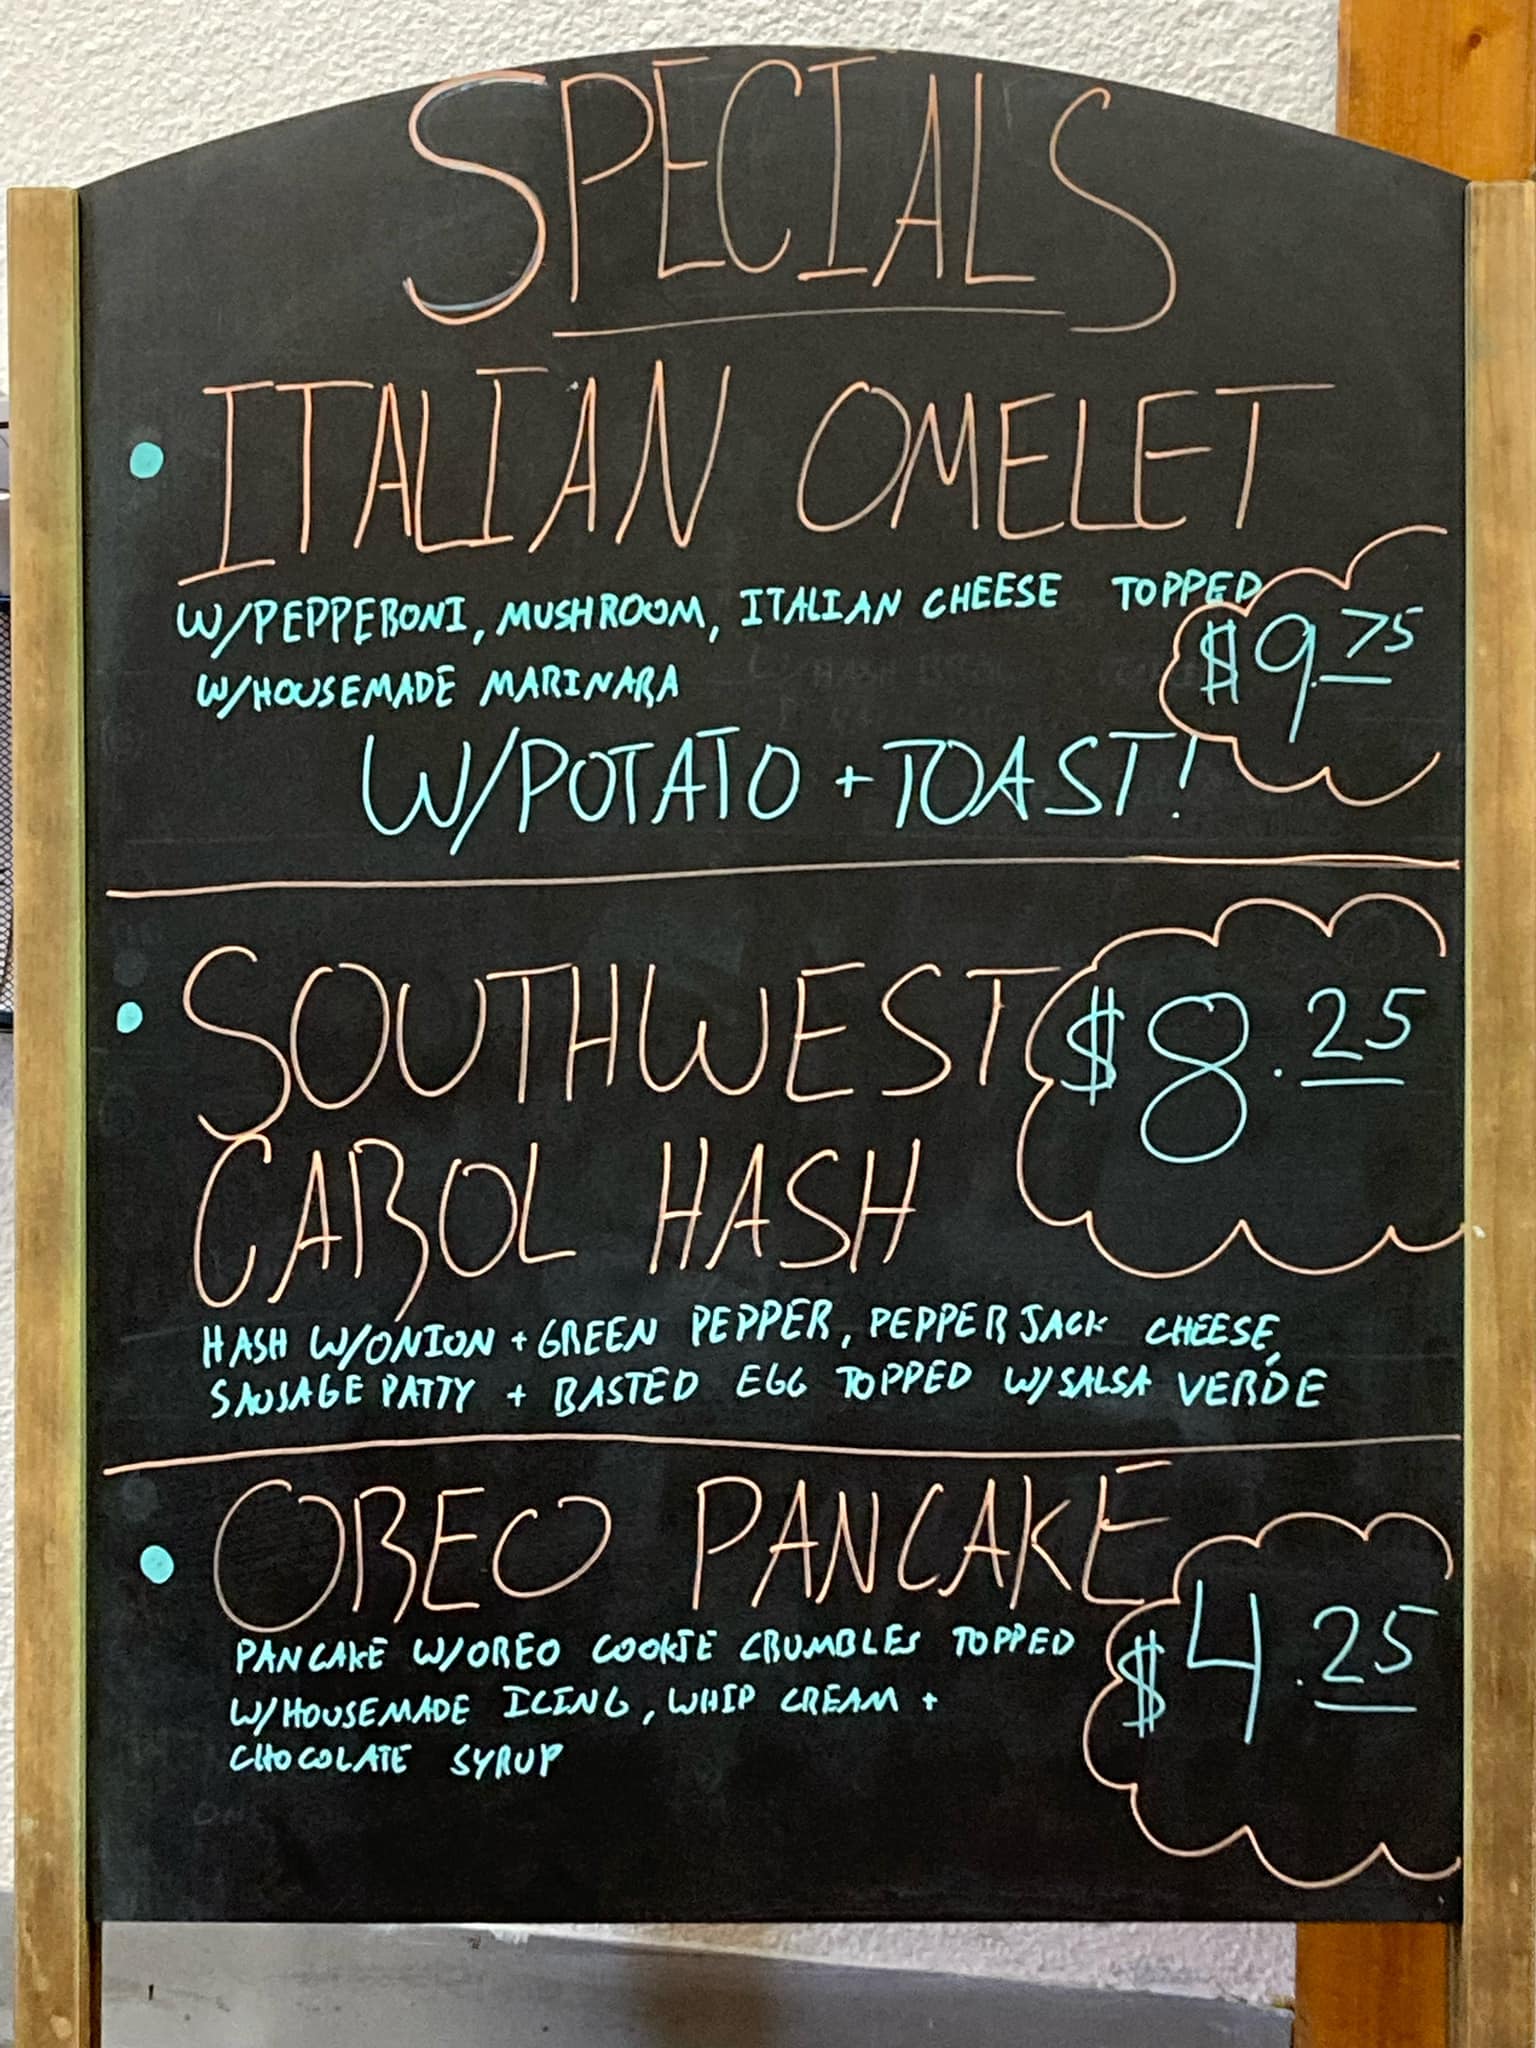 SPECIALS
• ITALIAN OMELET
W/PEPPERONI, MUSHROOM, ITALIAN CHEESE TOPPED
W/HOUSEMADE MARINARA
$9.75
W/POTATO + TOAST!
• SOUTHWEST
CAROL HASH
$8.25
HASH W/ONION + GREEN PEPPER, PEPPERJACK CHEESE,
SAUSAGE PATTY + BASTED EGG TOPPED W/SALSA VERDE
• OREO PANCAKE
PANCAKE W/OREO COOKIE CRUMBLES TOPPED
W/HOUSEMADE ICING, WHIP CREAM +
CHOCOLATE SYRUP
$4.25